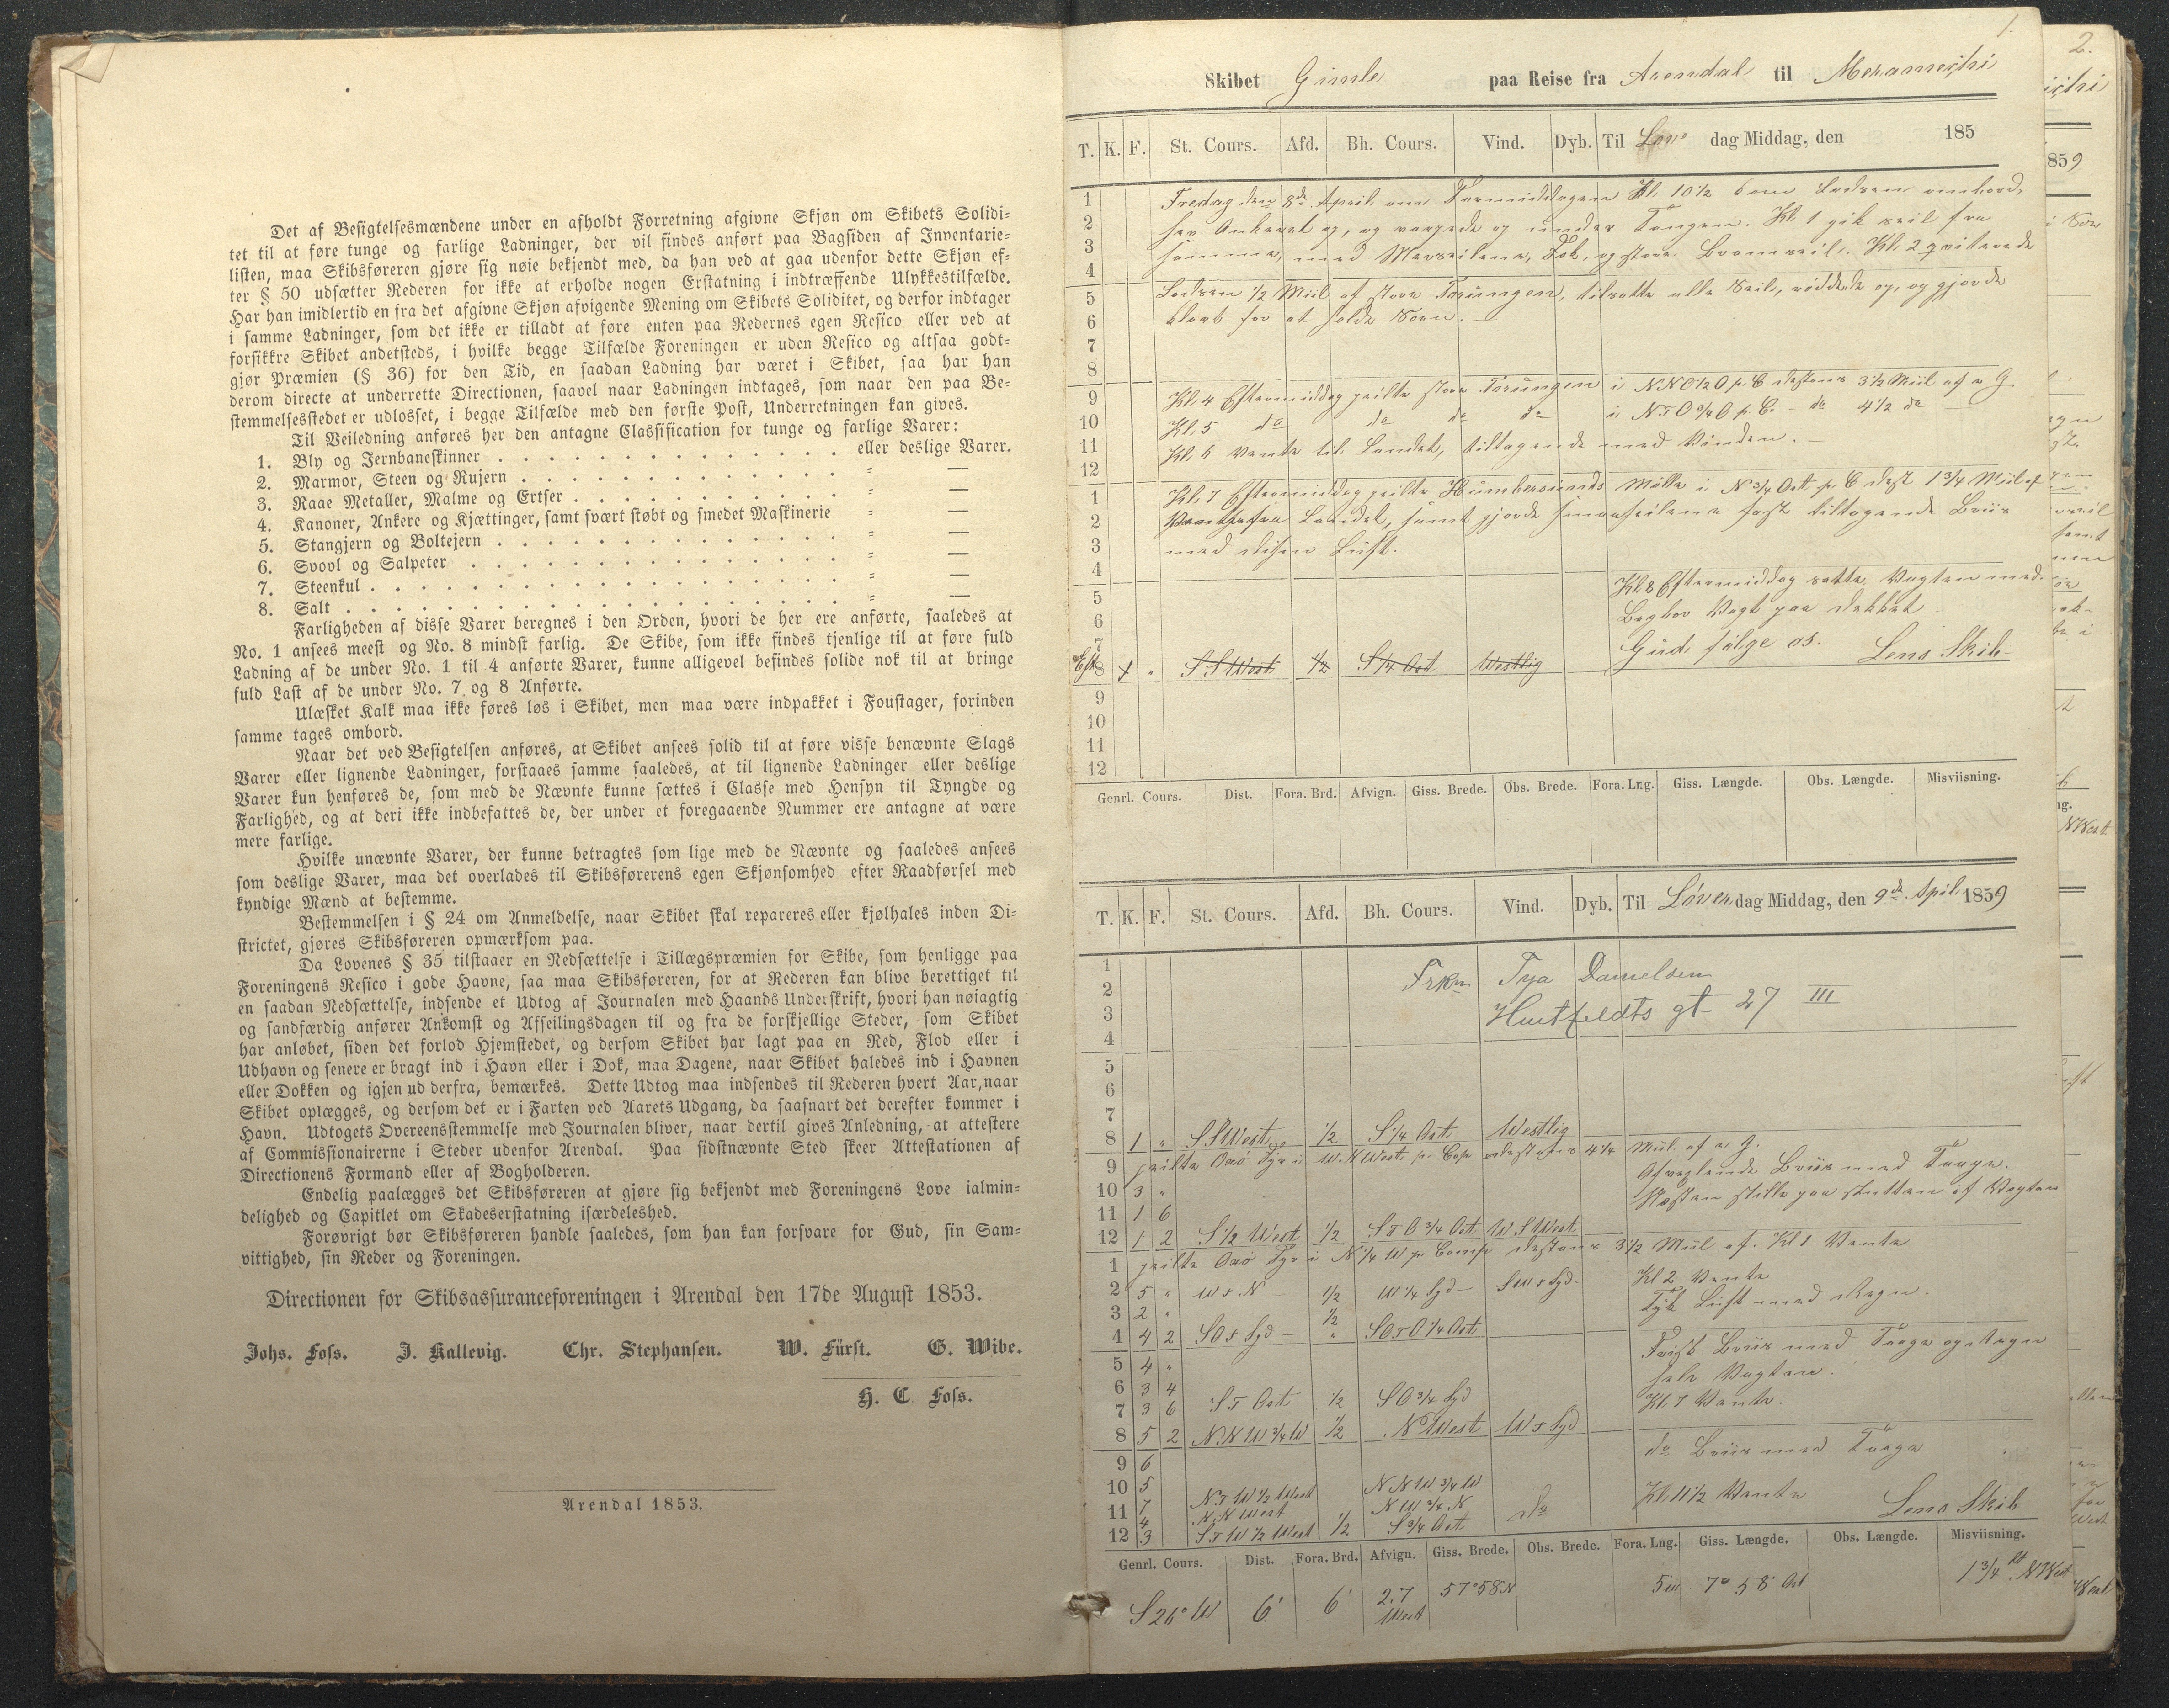 Det af Besigtelsesmændene under en afholdt Forretning afgivne Skjøn om Skibets Solidi-
tet til at føre tunge og farlige Ladninger, der vil findes anført paa Bagsiden af Inventarie-
listen, maa Skibsføreren gjøre sig nøie bekjendt med, da han ved at gaa udenfor dette Skjøn ef-
ter § 50 udsætter Rederen for ikke at erholde nogen Erstatning i indtræffende Ulykkestilfælde.
Har han imidlertid en fra det afgivne Skjøn afvigende Mening om Skibets Soliditet, og derfor indtager
i samme Ladninger, som det ikke er tilladt at føre enten paa Redernes egen Resico eller ved at
forsikkre Skibet andetsteds, i hvilke begge Tilfælde Foreningen er uden Resico og altsaa godt-
gjør Præmien (§ 36) for den Tid, en saadan Ladning har været i Skibet, saa har han
derom directe at underrette Directionen, saavel naar Ladningen indtages, som naar den paa Be-
stemmelsesstedet er udlosset, i begge Tilfælde med den første Post, Underretningen kan gives.
Til Veiledning anføres her den antagne Classification for tunge og farlige Varer:
1. Bly og Jernbaneskinner . . . . . . . . . . . . . . eller deslige Varer.
2. Marmor, Steen og Rujern . . . . . . . . . . . . . = —
3. Raae Metaller, Malme og Ertser . . . . . . . . . . . = —
4. Kanoner, Ankere og Kjættinger, samt svært støbt og smedet Maskinerie = —
5. Stangjern og Boltejern . . . . . . . . . . . . . . = —
6. Svovl og Salpeter . . . . . . . . . . . . . . . = —
7. Steenkul . . . . . . . . . . . . . . . . . . = —
8. Salt . . . . . . . . . . . . . . . . . . . = —
Farligheden af disse Varer beregnes i den Orden, hvori de her ere anførte, saaledes at
No. 1 ansees meest og No. 8 mindst farlig. De Skibe, som ikke findes tjenlige til at føre fuld
Ladning af de under No. 1 til 4 anførte Varer, kunne alligevel befindes solide nok til at bringe
fuld Last af de under No. 7 og 8 Anførte.
Ulæsket Kalk maa ikke føres løs i Skibet, men maa være indpakket i Foustager, forinden
samme tages ombord.
Naar det ved Besigtelsen anføres, at Skibet ansees solid til at føre visse benævnte Slags
Varer eller lignende Ladninger, forstaaes samme saaledes, at til lignende Ladninger eller deslige
Varer kun henføres de, som med de Nævnte kunne sættes i Classe med Hensyn til Tyngde og
Farlighed, og at deri ikke indbefattes de, der under et foregaaende Nummer ere antagne at være
mere farlige.
Hvilke unævnte Varer, der kunne betragtes som lige med de Nævnte og saaledes ansees
som deslige Varer, maa det overlades til Skibsførerens egen Skjønsomhed efter Raadførsel med
kyndige Mænd at bestemme.
Bestemmelsen i § 24 om Anmeldelse, naar Skibet skal repareres eller kjølhales inden Di-
strictet, gjøres Skibsføreren opmærksom paa.
Da Lovenes § 35 tilstaaer en Nedsættelse i Tillægspræmien for Skibe, som henligge paa
Foreningens Resico i gode Havne, saa maa Skibsføreren, for at Rederen kan blive berettiget til
en saadan Nedsættelse, indsende et Udtog af Journalen med Haands Underskrift, hvori han nøiagtig
og sandfærdig anfører Ankomst og Afseilingsdagen til og fra de forskjellige Steder, som Skibet
har anløbet, siden det forlod Hjemstedet, og dersom Skibet har lagt paa en Red, Flod eller i
Udhavn og senere er bragt ind i Havn eller i Dok, maa Dagene, naar Skibet haledes ind i Havnen
eller Dokken og igjen ud derfra, bemærkes. Dette Udtog maa indsendes til Rederen hvert Aar, naar
Skibet oplægges, og dersom det er i Farten ved Aarets Udgang, da saasnart det derefter kommer i
Havn. Udtogets Overeensstemmelse med Journalen bliver, naar dertil gives Anledning, at attestere
af Commissionairerne i Steder udenfor Arendal. Paa sidstnævnte Sted skeer Attestationen af
Directionens Formand eller af Bogholderen.
Endelig paalægges det Skibsføreren at gjøre sig bekjendt med Foreningens Love ialmin-
delighed og Capitlet om Skadeserstatning isærdeleshed.
Forøvrigt bør Skibsføreren handle saaledes, som han kan forsvare for Gud, sin Sam-
vittighed, sin Reder og Foreningen.
Directionen for Skibsassuranceforeningen i Arendal den 17de August 1853.
Johs. Foss. J. Kallevig. Chr. Stephansen. W. Fürst. G. Wibe.
H. C. Foss.
Arendal 1853.
1.
Skibet Gimle paa Reise fra Arendal til
T. K. F. St. Cours. Afd. Bh. Cours. Vind. Dyb. Til dag Middag, den 185
1 Fredag den 8de April om Formiddagen Kl. 10½ kom Lodsen ombord,
2 hev Ankeret op, og varpede op under Tangen. Kl. 1 gik seil fra
3 samme, med Merseilene, Fok, og store Bramseil. Kl. 2 qviterede
4
5 Lodsen ½ Miil af store Torungen, tilsatte alle Seil, røddede op, og gjorde
6 klart for at holde Søen.
7
8
9 Kl. 4 Eftermiddag peilte store Torungen i NNO½O p. C distans 3½ Miil af a G.
10 Kl. 5 do do do do i NTO¾O p. C. - do 4½ do
11 Kl. 6 Vente til Landet, tiltagende med Vinden.
12
1 Kl. 7 Eftermiddag peilte Humbersunds Mølle i N¾Ost p. C dist 1¾ Miil af
2 Vente fra Landet, samt gjorde smaaseilene fast tiltagende Briis
3 med disen Luft.
4
5 Kl. 8 Eftermiddag satte Vagten med
6 Bagbor Vagt paa dekket
7 Gud følge os. Lens Skib
8 S S West ½ S ¼ Ost Westlig
9
10
11
12
Genrl. Cours. Dist. Fora. Brd. Afvign. Giss. Brede. Obs. Brede. Fora. Lng. Giss. Længde. Obs. Længde. Misviisning.
T. K. F. St. Cours. Afd. Bh. Cours. Vind. Dyb. Til Løver dag Middag, den 9de April 1859
1
2 Frkn Tya Danielsen
3 Huitfeldts gt 27 III
4
5
6
7
8 1 " SSWest ½ S¼ Ost Westlig
9 peilte Oxø Fyr i WNWest p. Cop distans 4¼ Miil af a G.
Afveglende Briis med Taage.
10 3 "
11 1 6 Næsten stille paa slutten af Vagten
12 1 2 S½ West ½ STO¾ Ost WSWest
1 peilte Oxø Fyr i N¼W p. Comp distans 3½ Miil af. Kl 1 Vente
2 5 " WTN ½ W¼ Syd SWTSyd Kl 2 Vente
3 2 " ½ Tyk Luft med Regn.
4 4 2 SOTSyd " SOTO¼Ost
5 4 " Frisk Briis med Taage og Regn
6 3 4 hele Vagten.
7 3 6 ST Ost ½ SO¾ Syd Kl. 7 Vente.
8 5 2 NNW¾W ½ NWest WTSyd
9 6 do Briis med Taage
10 5 NTW½West NNW¾W
11 7 NNWest NW¾N do Kl. 11½ Vente
4
12 3 STW½West ½ S¾Ost Lens Skib
Genrl. Cours. Dist. Fora. Brd. Afvign. Giss. Brede. Obs. Brede. Fora. Lng. Giss. Længde. Obs. Længde. Misviisning.
S 26° W 6' 6' 2.7 West 57°58 N 5 w 7° 58' Ost 1¾ St. NWest
2.
859